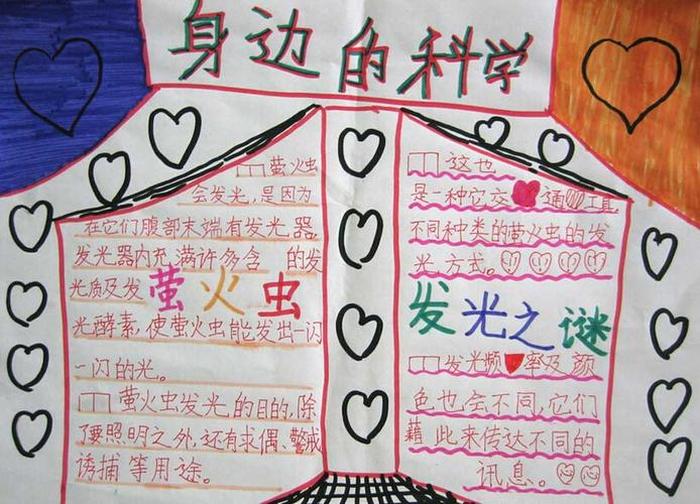 身边的科学
萤火虫
会发光,是因为
在它们腹部末端有发光器,
发光器内充满许多含 的发
光质及发
萤火虫
光酵素,使萤火虫能发出一闪
一闪的光。
萤火虫发光的目的,除
了要照明之外,还有求偶、警戒
诱捕等用途。
这也
是一种它交 通工具
不同种类的萤火虫的发
光方式。
发光之谜
发光频 率及颜
色也会不同,它们
藉此来传达不同的
讯息。